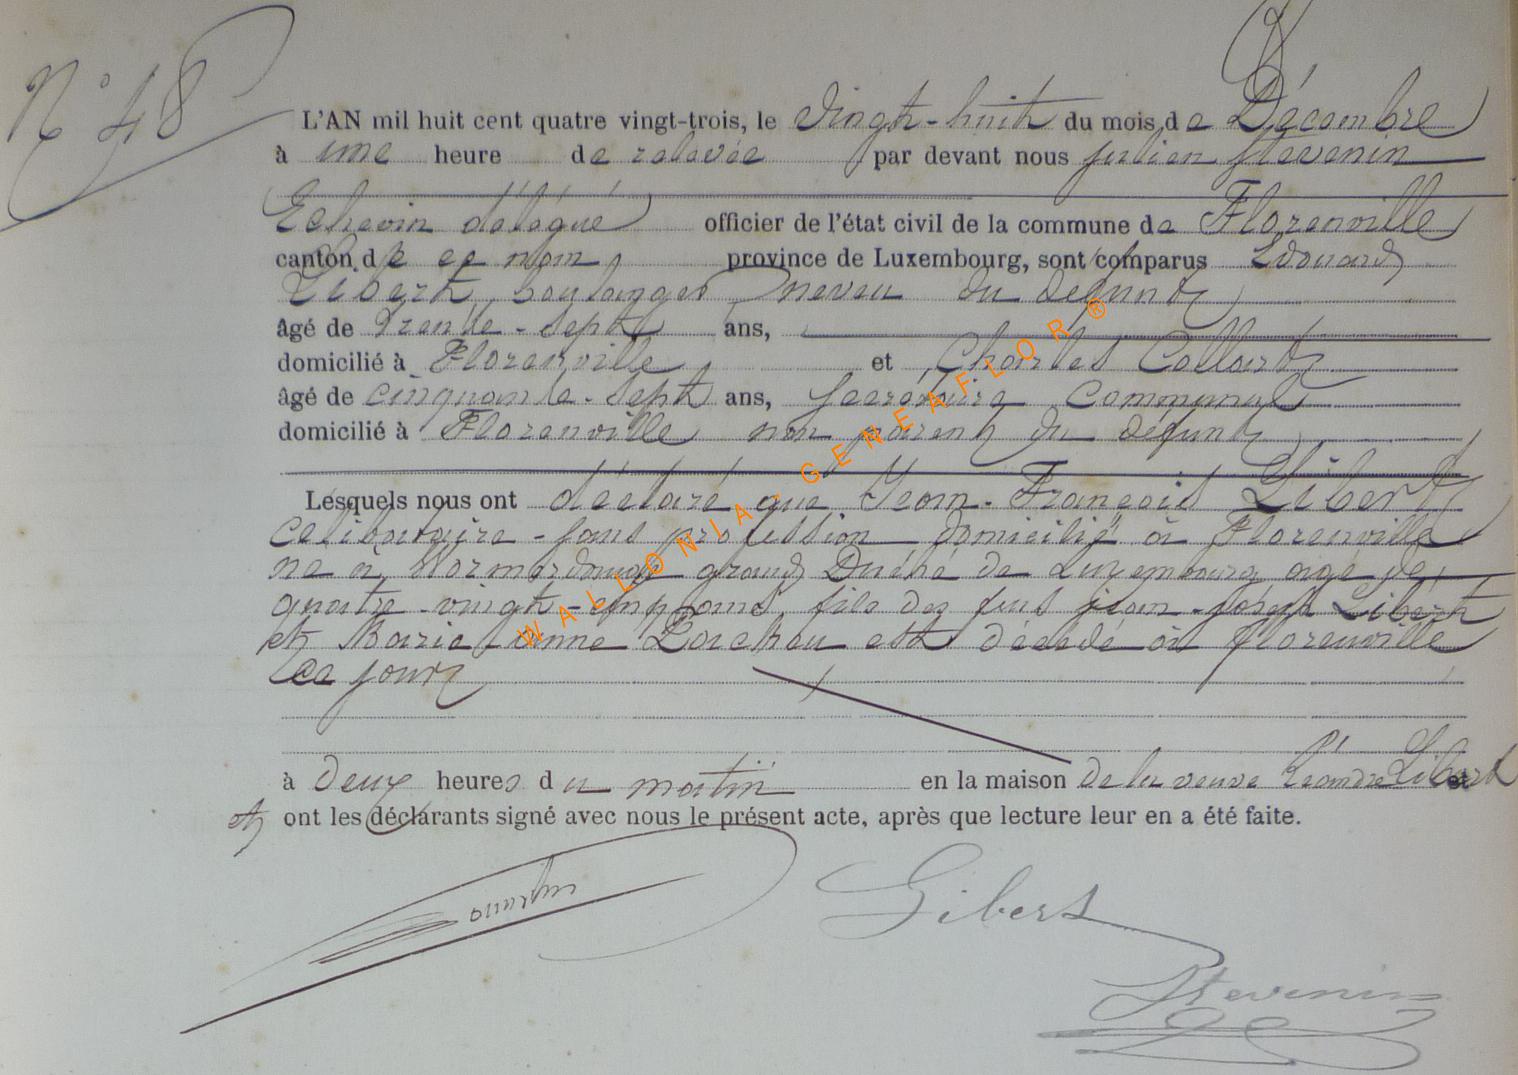 N° 48
L'AN mil huit cent quatre vingt-trois, le vingt-huit du mois de Décembre
à une heure de relevée par devant nous Julien Stevenin
Echevin délégué officier de l'état civil de la commune de Florenville
canton de ce nom, province de Luxembourg, sont comparus Edouard
Libert, boulanger neveu du defunt
âgé de Trente-Sept ans,
domicilié à Florenville et Charles Collard
âgé de cinquante-Sept ans, Secrétaire Communal
domicilié à Florenville non parent du defunt
Lesquels nous ont déclaré que Jean-François Libert
celibataire - sans profession domicilié à Florenville
né à grand Duché de Luxembourg agé de
quatre-vingt-cinq ans, fils des feus jean-Joseph Libert
et Marie anne est décédé à florenville
ce jour
à deux heures du matin en la maison de la veuve Léandre Libert
et ont les déclarants signé avec nous le présent acte, après que lecture leur en a été faite.
Libert
Stevenin
WALLONIA-GENEAFLOR ®